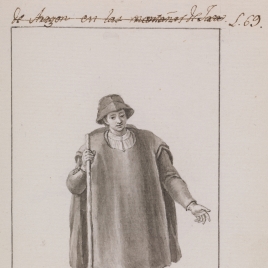 de Aragon en las montañas de Jaca L.69.